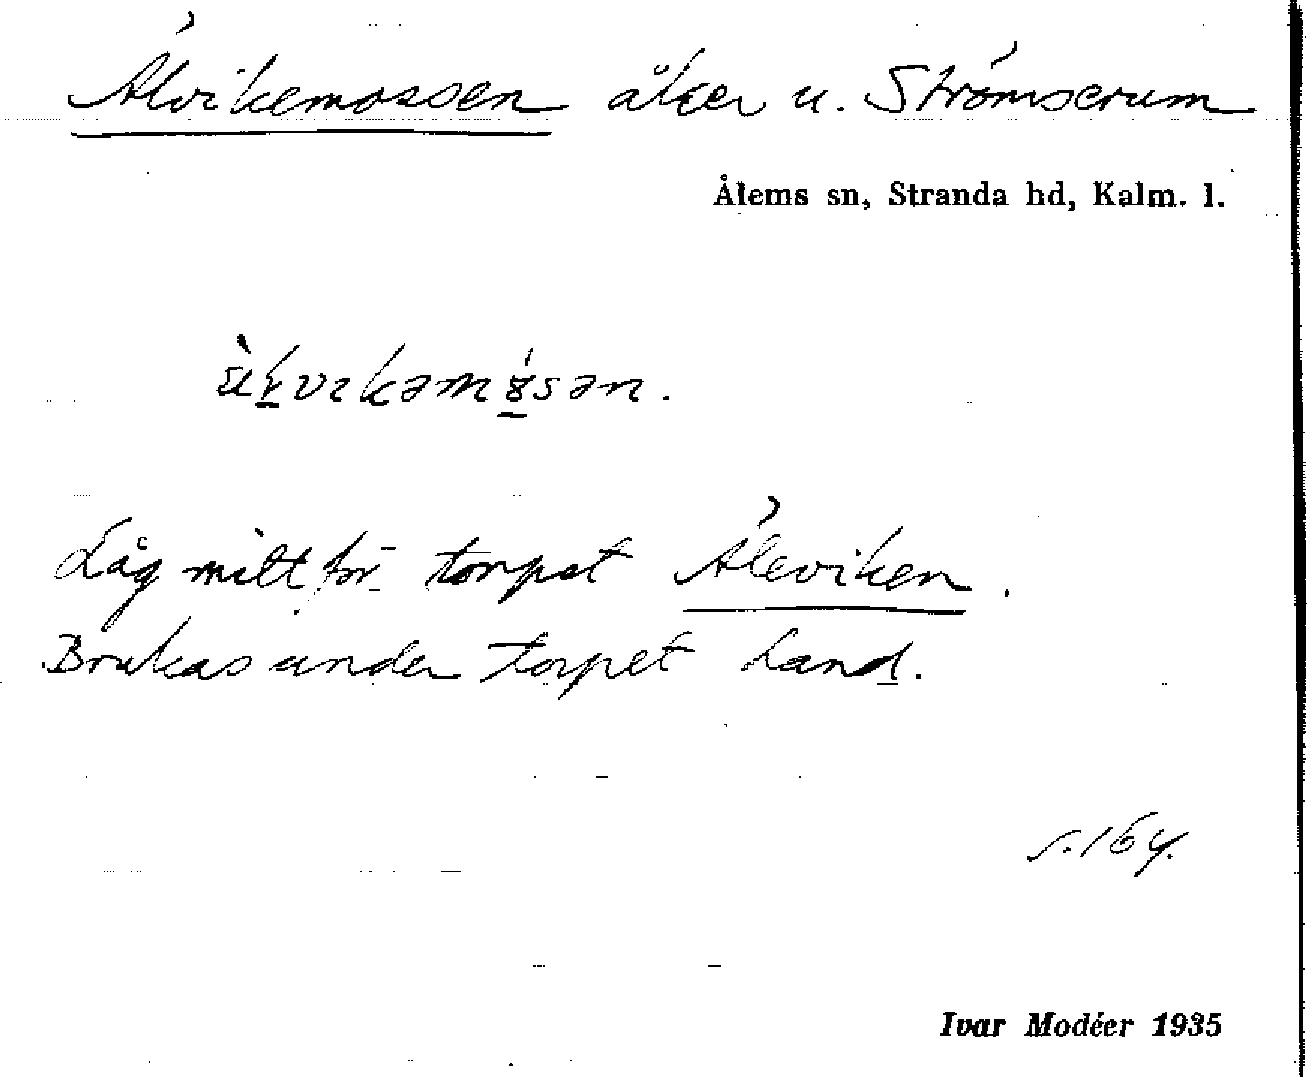 Ålvikemossen åker u. Strömserum
Ålems sn, Stranda hd, Kalm. l.
Låg mitt för torpet Åleviken.
Brukas under torpet Land.
s. 164.
Ivar Modéer 1935